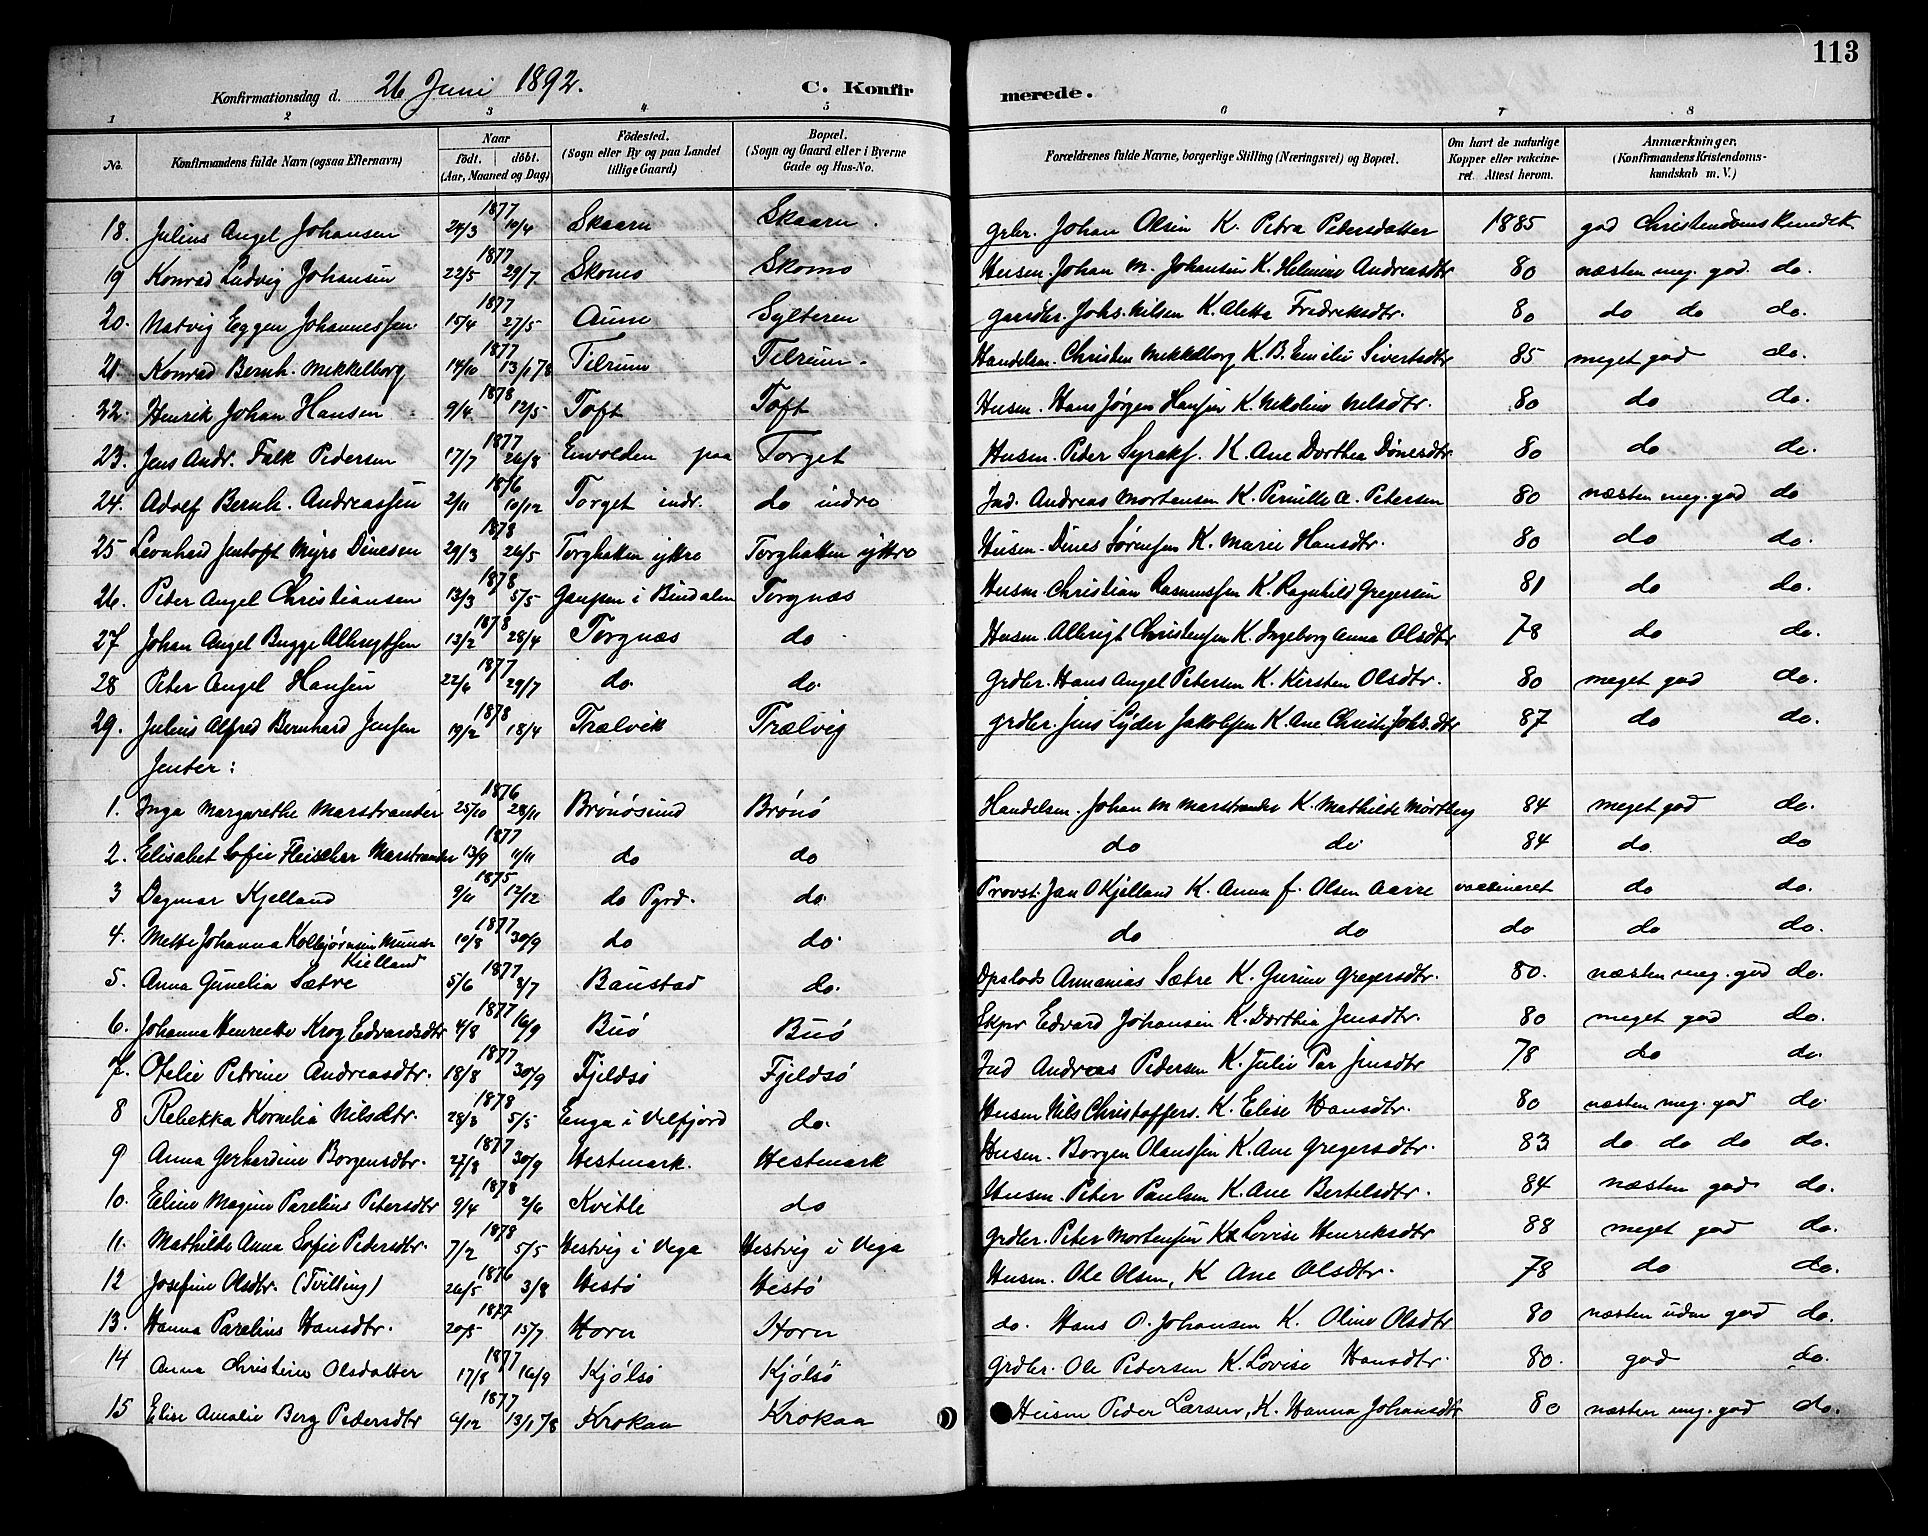 113
Konfirmationsdag d. 26 Juni 1892. C. Konfirmerede.
1 2 3 4 5 6 7 8
No. Konfirmandens fulde Navn (ogsaa Efternavn) Naar født. døbt. (Aar, Maaned og Dag) Fødested. (Sogn eller By og paa Landet tillige Gaard) Bopæl. (Sogn og Gaard eller i Byerne Gade og Hus-No. Forældrenes fulde Navne, borgerlige Stilling (Næringsvei) og Bopæl. Om havt de naturlige Kopper eller vakcineret. Attest herom. Anmærkninger, (Konfirmandens Kristendomskundskab m. V.)
18. Julius Angel Johansen 1877 24/3 10/4 Skaarn Skaarn. grbr. Johan Olsen K. Petra Pedersdatter 1885 god Christendomskundsk.
19 Konrad Ludvig Johansen 1877 22/5 29/7 Skomo Skomo Husm. Johan M. Johansen K. Helmine Andreasdtr 80 næsten meg. god. do.
20. Natvig Eggen Johannessen 1877 15/4 27/5 Aune Sylteren gaardbr. Johs. Nilsen K. Aletta Fredriksdtr. 80 do do do.
21. Konrad Bernh. Mekkelborg 1877 14/10 13/1 78 Tilrum Tilrum. Handelsm. Christen Mekkelborg K. B. Emilie Sivertsdtr 85 meget god do.
22. Henrik Johan Hansen 1878 9/4 12/5 Toft Toft Husm. Hans Jørgen Hansen K. Nikoline Nilsdtr. 80 do do.
23. Jens Andr. Falk Pedersen 1877 17/7 26/8 Envolden paa Torget Husm. Peder Syraks. K. Ane Dorthea Dønesdtr 80 do do.
24. Adolf Bernh. Andreassen 1876 2/11 10/12 Torget indr. do indre Ind. Andreas Mortensen K. Pernille A. Petersen 80 næsten meg. god do
25 Leonhard Jentoft Myro Dinesen 1878 29/3 26/5 Torghatten yttre Torghatten yttre Husm. Dines Sørensen K. Marie Hansdtr. 80 do do.
26. Peter Angel Christiansen 1878 13/3 5/5 Gaupen i Bindalen Torgnæs Husm. Christian Rasmussen K. Ragnhild Gregersen 81 do do.
27 Johan Angel Bugge Albregtsen 1878 13/2 28/4 Torgnæs do Husm. Albrigt Christensen K. Ingeborg Anna Olsdtr 78 do do.
28 Peter Angel Hansen 1877 22/6 29/7 do. do. Grdbr. Hans Angel Petersen K. Kirsten Olsdtr. 80 meget god do.
29. Julius Alfred Bernhard Jensen 1878 19/2 18/4 Trælvik Trælvig grdbr. Jens Lyder Jakobsen K. Ane Christi Johs.dtr 87 do do.
Jenter:
1. Inga Margarethe Marstrander 1876 25/10 28/11 Brønøsund Brønø Handelsm. Johan M Marstrander K. Mathilde Mørtberg 84 meget god do.
2. Elisabet Sofie Fleischer Marstrander 1877 13/9 11/11 do do do do 84 do do
3 Dagmar Kjelland 1875 9/11 12/12 do Pgrd. do. Provst Jan O Kjelland K. Anna f. Olsen Aarre vaccineret do do.
4. Mette Johanna Kolbjørnsen Munch Kielland 1877 10/8 30/9 do do. do do do do do.
5. Anna Gunelia Sætre 1877 5/6 8/7 Baustad do. Opslods Armanias Sætre K. Gurine Gregersdtr. 80. næsten meg. god do.
6. Johanna Henrette Krog Edvardsdtr 1877 4/8 16/9 Buø Buø Skpr Edvard Johansen K. Dorthea Jensdtr. 80 meget god do.
7. Otelie Petrine Andreasdtr. 1877 18/8 30/9 Fjeldsø Fjeldsø Ind Andreas Pedersen K. Julie Par Jensdtr 78 do do.
8 Rebekka Kornelia Nilsdtr. 1878 28/3 5/5 Enga i Velfjord do. Husm Nils Christoffers. K. Elise Hansdtr. 80 næsten meg. god do.
9 Anna Gerhardine Borgensdtr. 1877 27/8 30/9 Hestmark. Hestmark Husm. Borgen Olaussen K. Ane Gregersdtr. 83 do do do do.
10. Eline Magine Parelius Petersdtr 1878 9/4 2/6 Kvitli do Husm. Peter Paulsen K. Ane Bertelsdtr. 84 næsten god do.
11. Mathilde Anna Sofie Pedersdtr. 1878 7/2 5/5 Hestvig i Vega Hestvig i Vega Grdbr. Peter Mortensen K Lovise Henriksdtr 88 meget god do.
12 Josefine Olsdtr. (Tvilling) 1876 26/5 3/8 Hestø Hestø Husm. Ole Olsen, K Ane Olsdtr. 78 do do.
13. Hanna Parelius Hansdtr. 1877 20/5 15/7 Horn Horn do. Hans O. Johansen K. Oline Olsdtr 80 næsten uden god do.
14 Anna Christine Olsdatter 1877 17/8 16/9 Kjølsø Kjølsø Grdbr. Ole Pedersen K. Lovise Hansdtr. 80. god do.
15 Elise Amalie Berg Pedersdtr 1877 6/12 13/1 78 Krokaa Krokaa Husm Peder Larsen, K. Hanna Johansdtr 80 næsten meg. god do.